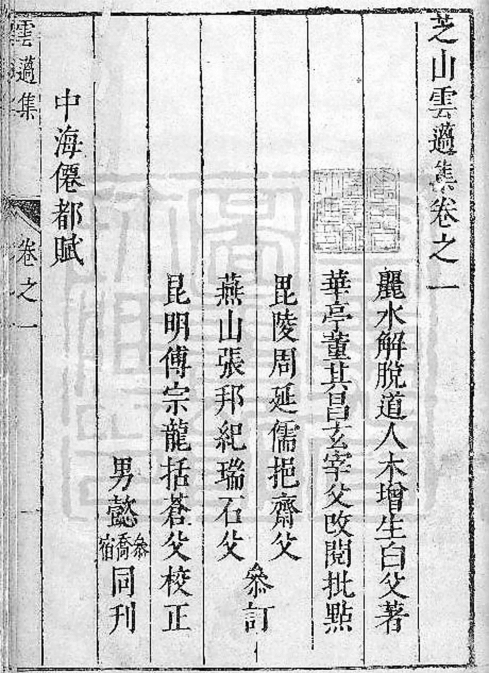 芝山雲薖集卷之一
麗水解脫道人木增生白父著
華亭董其昌玄宰父改閱批點
毘陵周延儒挹齋父
燕山張邦紀瑞石父
叅訂
昆明傅宗龍括蒼父校正
男懿
喬
宿
同刊
中海僊都賦
雲薖集
卷之一